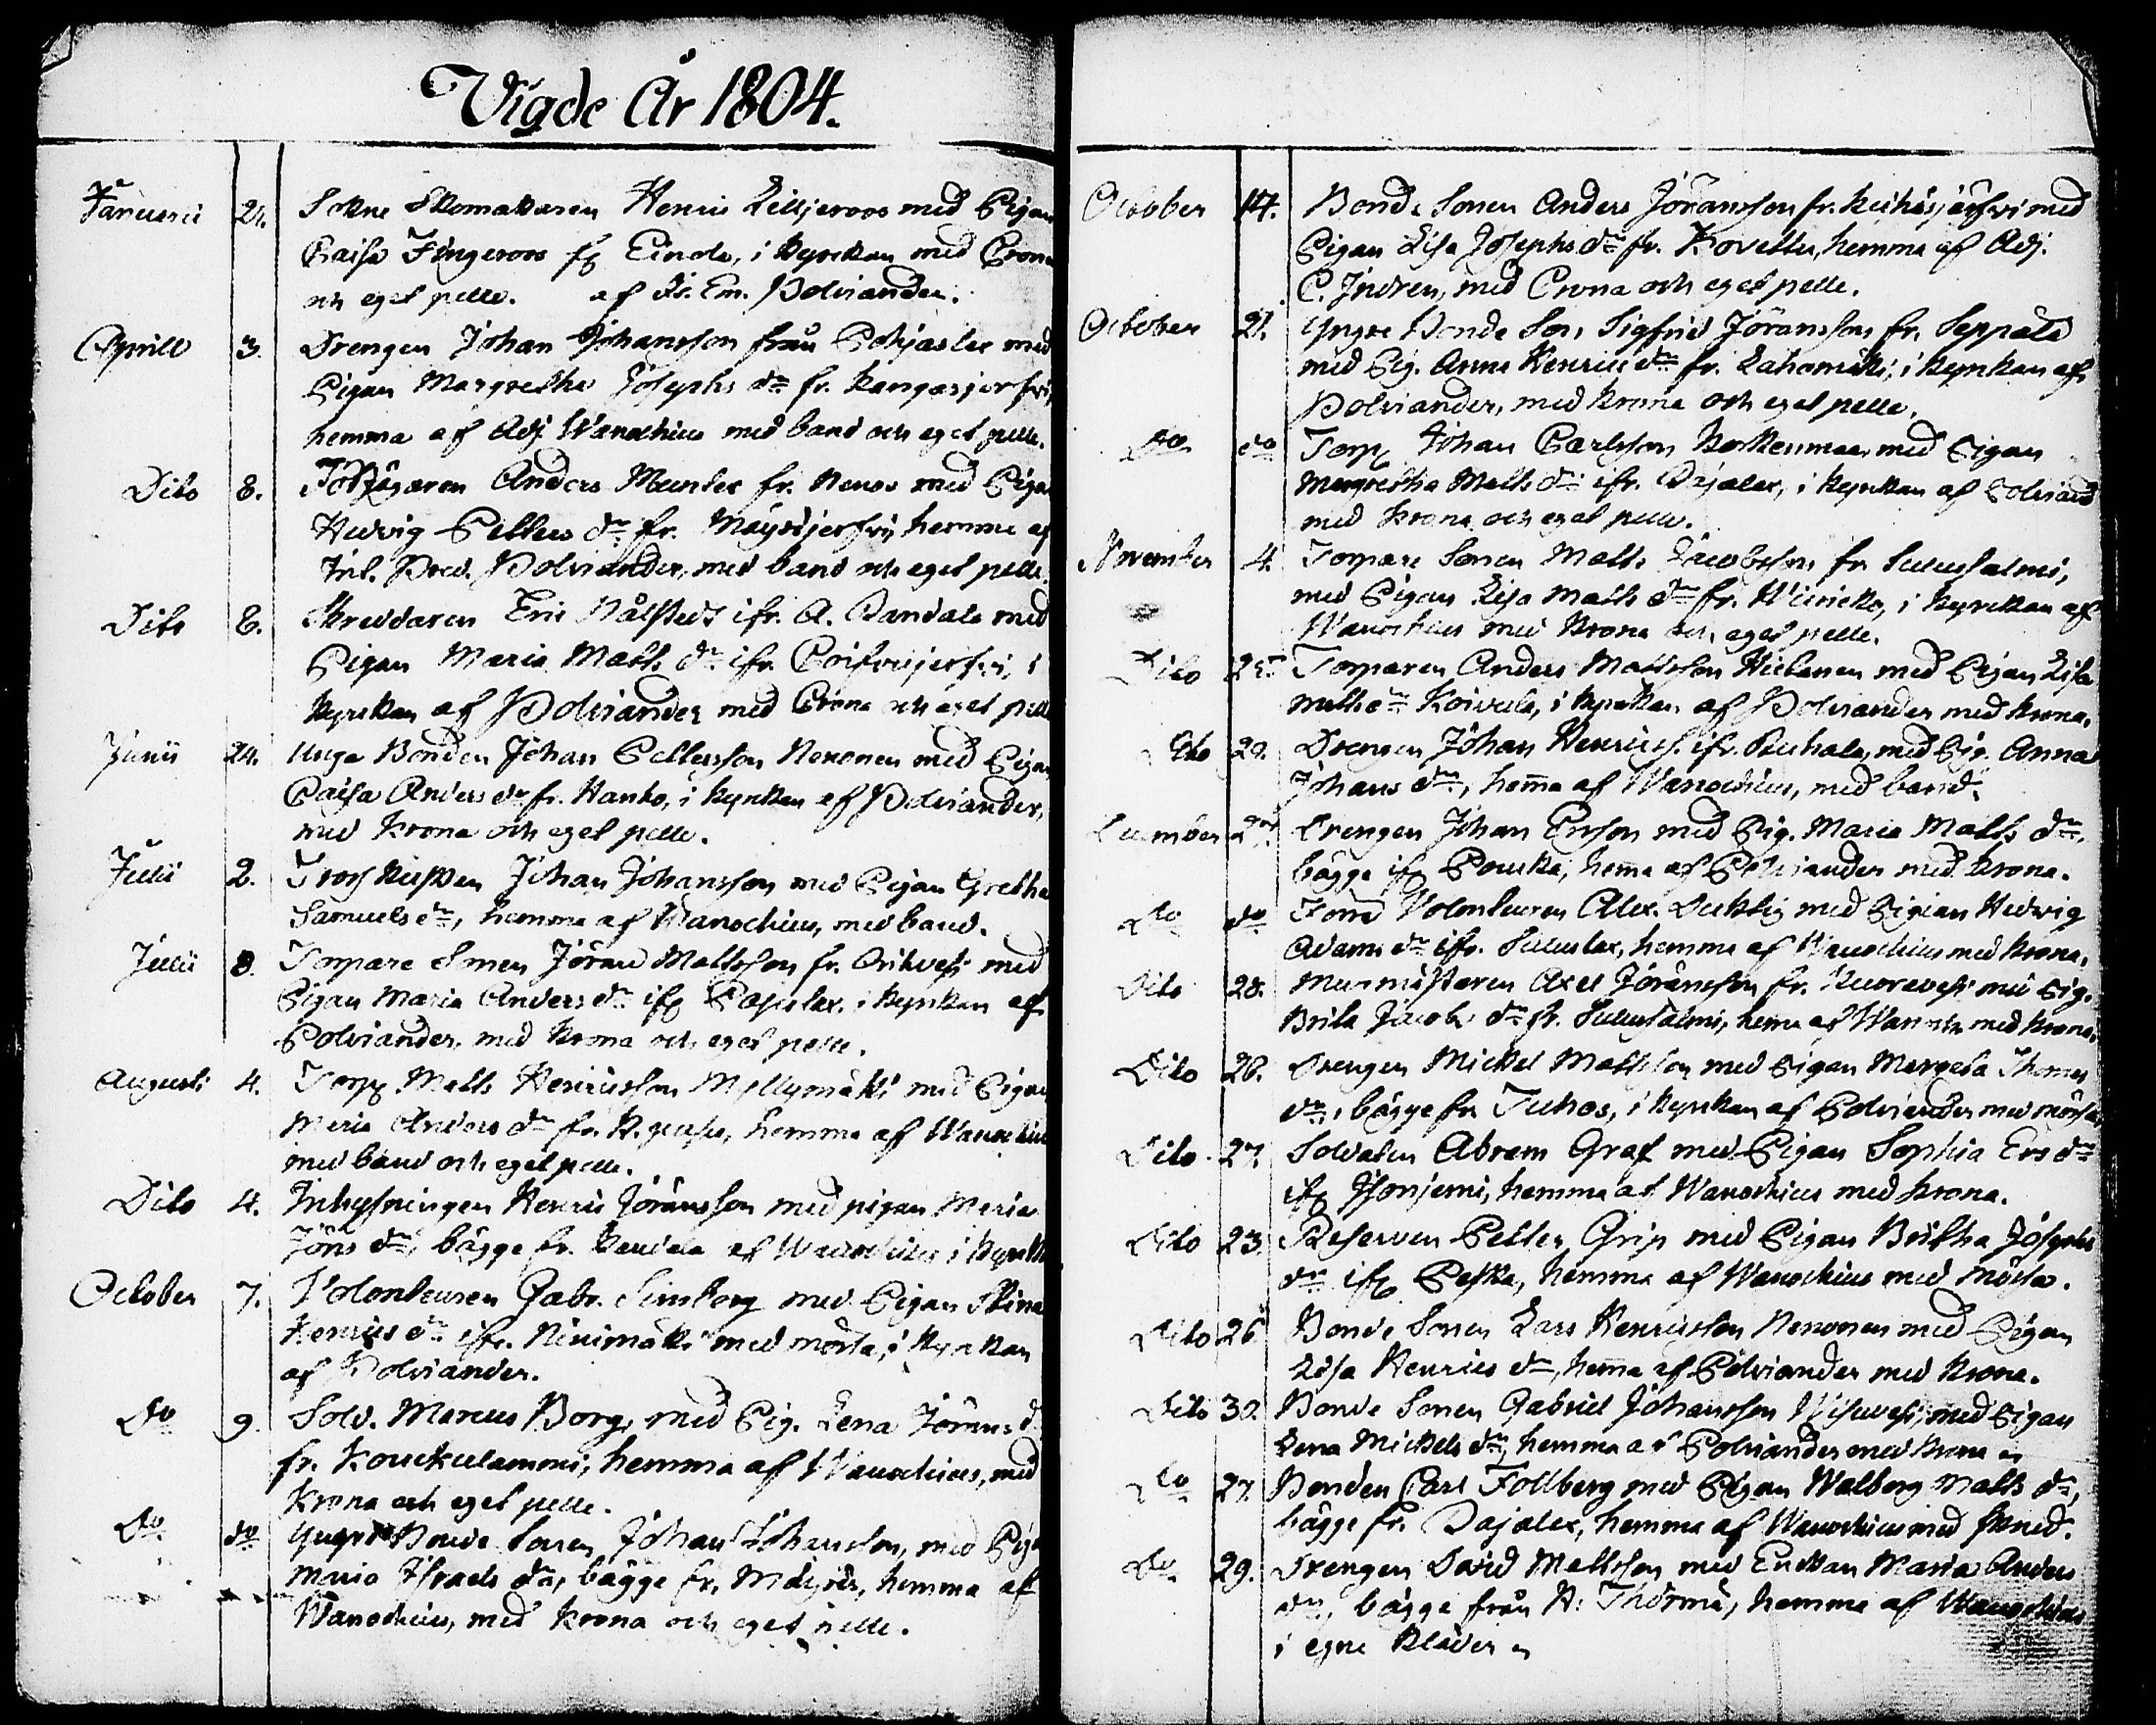 Vigde År 1804.
Januarii 21. Sokne Skomakaren Henric Liljeroos med Pigan
Caisa Fingeroos fr Einola, i kyrkan med Crona
och eget pelle. af Is. Em. Polviander.
Aprill 3. Drengen Johan Johansson från Pohjaslax med
Pigan Margretha Josephs dr fr. kangasjerfvi,
hemma af Adj. Wanochius med band och eget pelle.
Dito 8. Anders Munter fr. Nenos med Pigan
Hedvig Petters dr fr. Mäyrejerfvi, hemma af
Pred. Polviander, med band och eget pelle
Dito 8. Skreddaren Eric ifr. A. Dandala med
Pigan Maria Matts dr ifr. i
kyrkan af Polviander med Crona och eget pelle
Junii 24. Unga Bonden Johan Pettersson Nenonen med Pigan
Caisa Anders dr fr. Hanko, i kyrkan af Polviander,
med Krona och eget pelle.
Julii 2. Tross kusken Johan Johansson med Pigan Gretha
Samuels dr, hemma af Wanochius, med band.
Julii 8. Torpare Sonen Jöran Mattsson fr. med
Pigan Maria Anders dr ifr Pajulax. i kyrkan af
Polviander, med krona och eget pelle.
Augusti 4. Torp Matts Henricsson Myllymäki med Pigan
Maria Anders dr fr. hemma af Wanochius
med band och eget pelle.
Dito 4. Inhysningen Henric Jöransson med pigan Maria
Jöns dr, bägge fr. af Wanochius i kyrkan
October 7. Volonteuren Gabr. med Pigan Stina
Henrics dr ifr. Ninimäki med mössa, i kyrkan
af Polviander.
Do 9. Sold. Marcus Borg, med Pig. Lena Jörans d
fr. Koukulammi, hemma af Wanochius, med
Krona och eget pelle.
Do do Yngre Bonde Sonen Johan Johansson, med Pig
Maria Israels dr, bägge fr. Mäyrä, hemma af
Wanochius, med krona och eget pelle.
October 14. Bonde Sonen Anders Jöransson fr. med
Pigan Lisa Josephs dr fr. Kovettu, hemma af Adj.
C. Indren, med Crona och eget pelle.
October 21. Yngre Bonde Son, Sigfrid Jöransson fr. Seppälä
med Pig. Anna Henrics dr fr. Lahomäki, i kyrkan af
Polviander, med krona och eget pelle.
Do do Torp Johan Carlsson med Pigan
Margretha Matts dr ifr. Pajalax, i kyrkan af Polviand
med krona och eget pelle.
November 4. Torpare Sonen Matts Jacobsson fr Suensalmi,
med Pigan Lisa Matts dr fr. i kyrkan af
Wanochius med krona och eget pelle.
Dito 25. Torparen Anders Mattsson Hietanen med Pigan Lisa
Matts dr Koivula, i kyrkan af Polviander med krona.
Dito 29. Drengen Johan Henrics. ifr. Ruthala, med Pig. Anna
Johans dr, hemma af Wanochius, med band.
December 27. Drengen Johan Ersson med Pig. Maria Matts dr,
bägge ifr Pouska, hemma af Polviander med krona.
Do do Volonteuren Alex. med Pigan Hedvig
Adams dr ifr. hemma af Wanochius med krona.
Dito 28. Murmästaren Axel Jöransson fr. Kuoresvesi med Pig.
Brita Jacobs dr fr. hemma af Wanoch med krona,
Dito 26. Drengen Mickel Mattsson med Pigan Margeta Thomas
dr, bägge fr Tuhos, i kyrkan af Polviander med mössa
Dito 27. Soldaten Abram Graf med Pigan Sophia Ers dr
ifr Isonjemi, hemma af Wanochius med krona.
Dito 23. Reserven Petter Grip med Pigan Britha Josephs
dr ifr Peska, hemma af Wanochius med mössa.
Dito 26 Bonde Sonen Lars Henricsson Nenonen med Pigan
Lisa Henrics dr, hemma af Polviander med krona.
Dito 30. Bonde Sonen Gabriel Johansson Wisuvesi, med Pigan
Lena Mickels dr, hemma af Polviander med krona
Do 27. Bonden Carl Follberg med Pigan Walborg Matts dr,
bägge fr. Pajalax, hemma af Wanochius med
Do 29. Drengen David Mattsson med Enckan Maria Anders
dr, bägge från hemma af Wanochius
i egne kläder